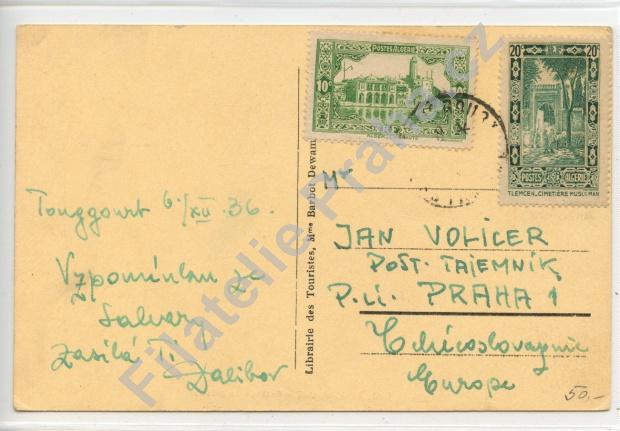 POSTES ALGERIE
10c
20c 20c
POSTES ALGERIE
TLEMCEN, CIMETIÈRE MUSULMAN
Touggourt 6./XII. 36.
Vzpomínku ze
Sahary
zasílá Ti
Dalibor
Librairie des Touristes, Mme Barbot Dewam
Mr
JAN VOLICER
POŠT. TAJEMNÍK
PRAHA 1
Tchécoslovaquie
Europe
50,-
Filatelie Praha.cz